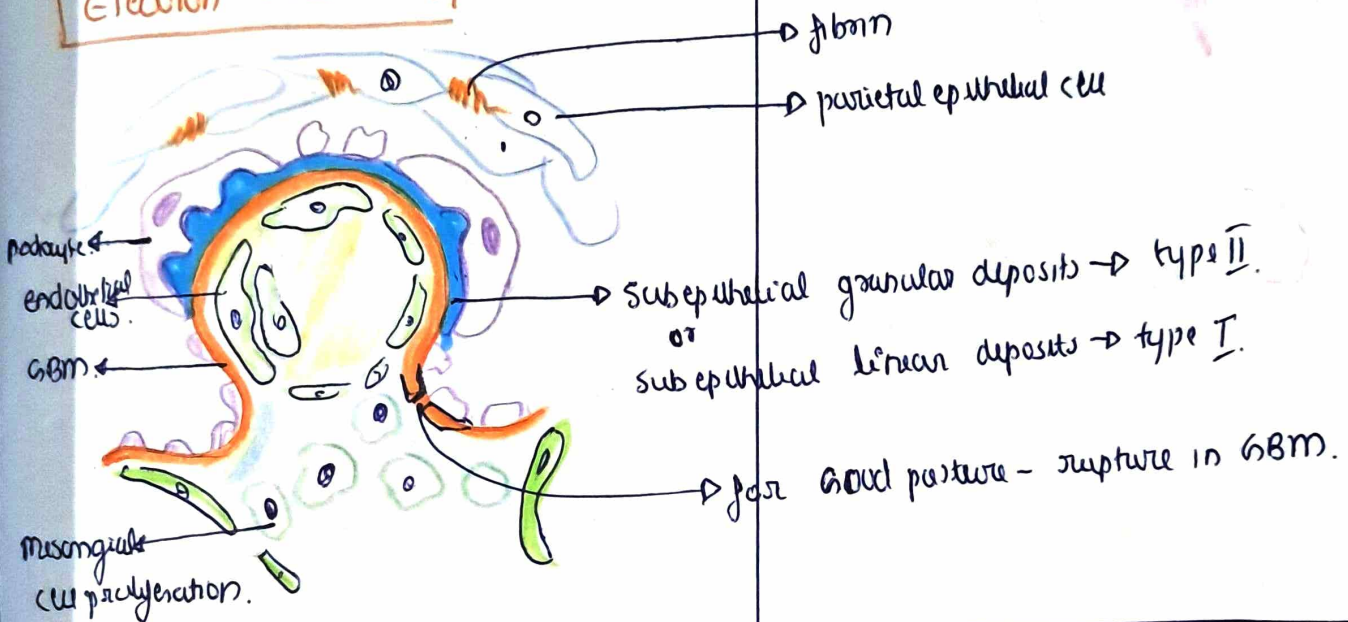 fibrin
parietal epithelial cell
podocyte
endothelial
cells.
GBM
subepithelial granular deposits → type II.
or
subepithelial linear deposits → type I.
for Good pasture - rupture in GBM.
mesangial
cell proliferation.